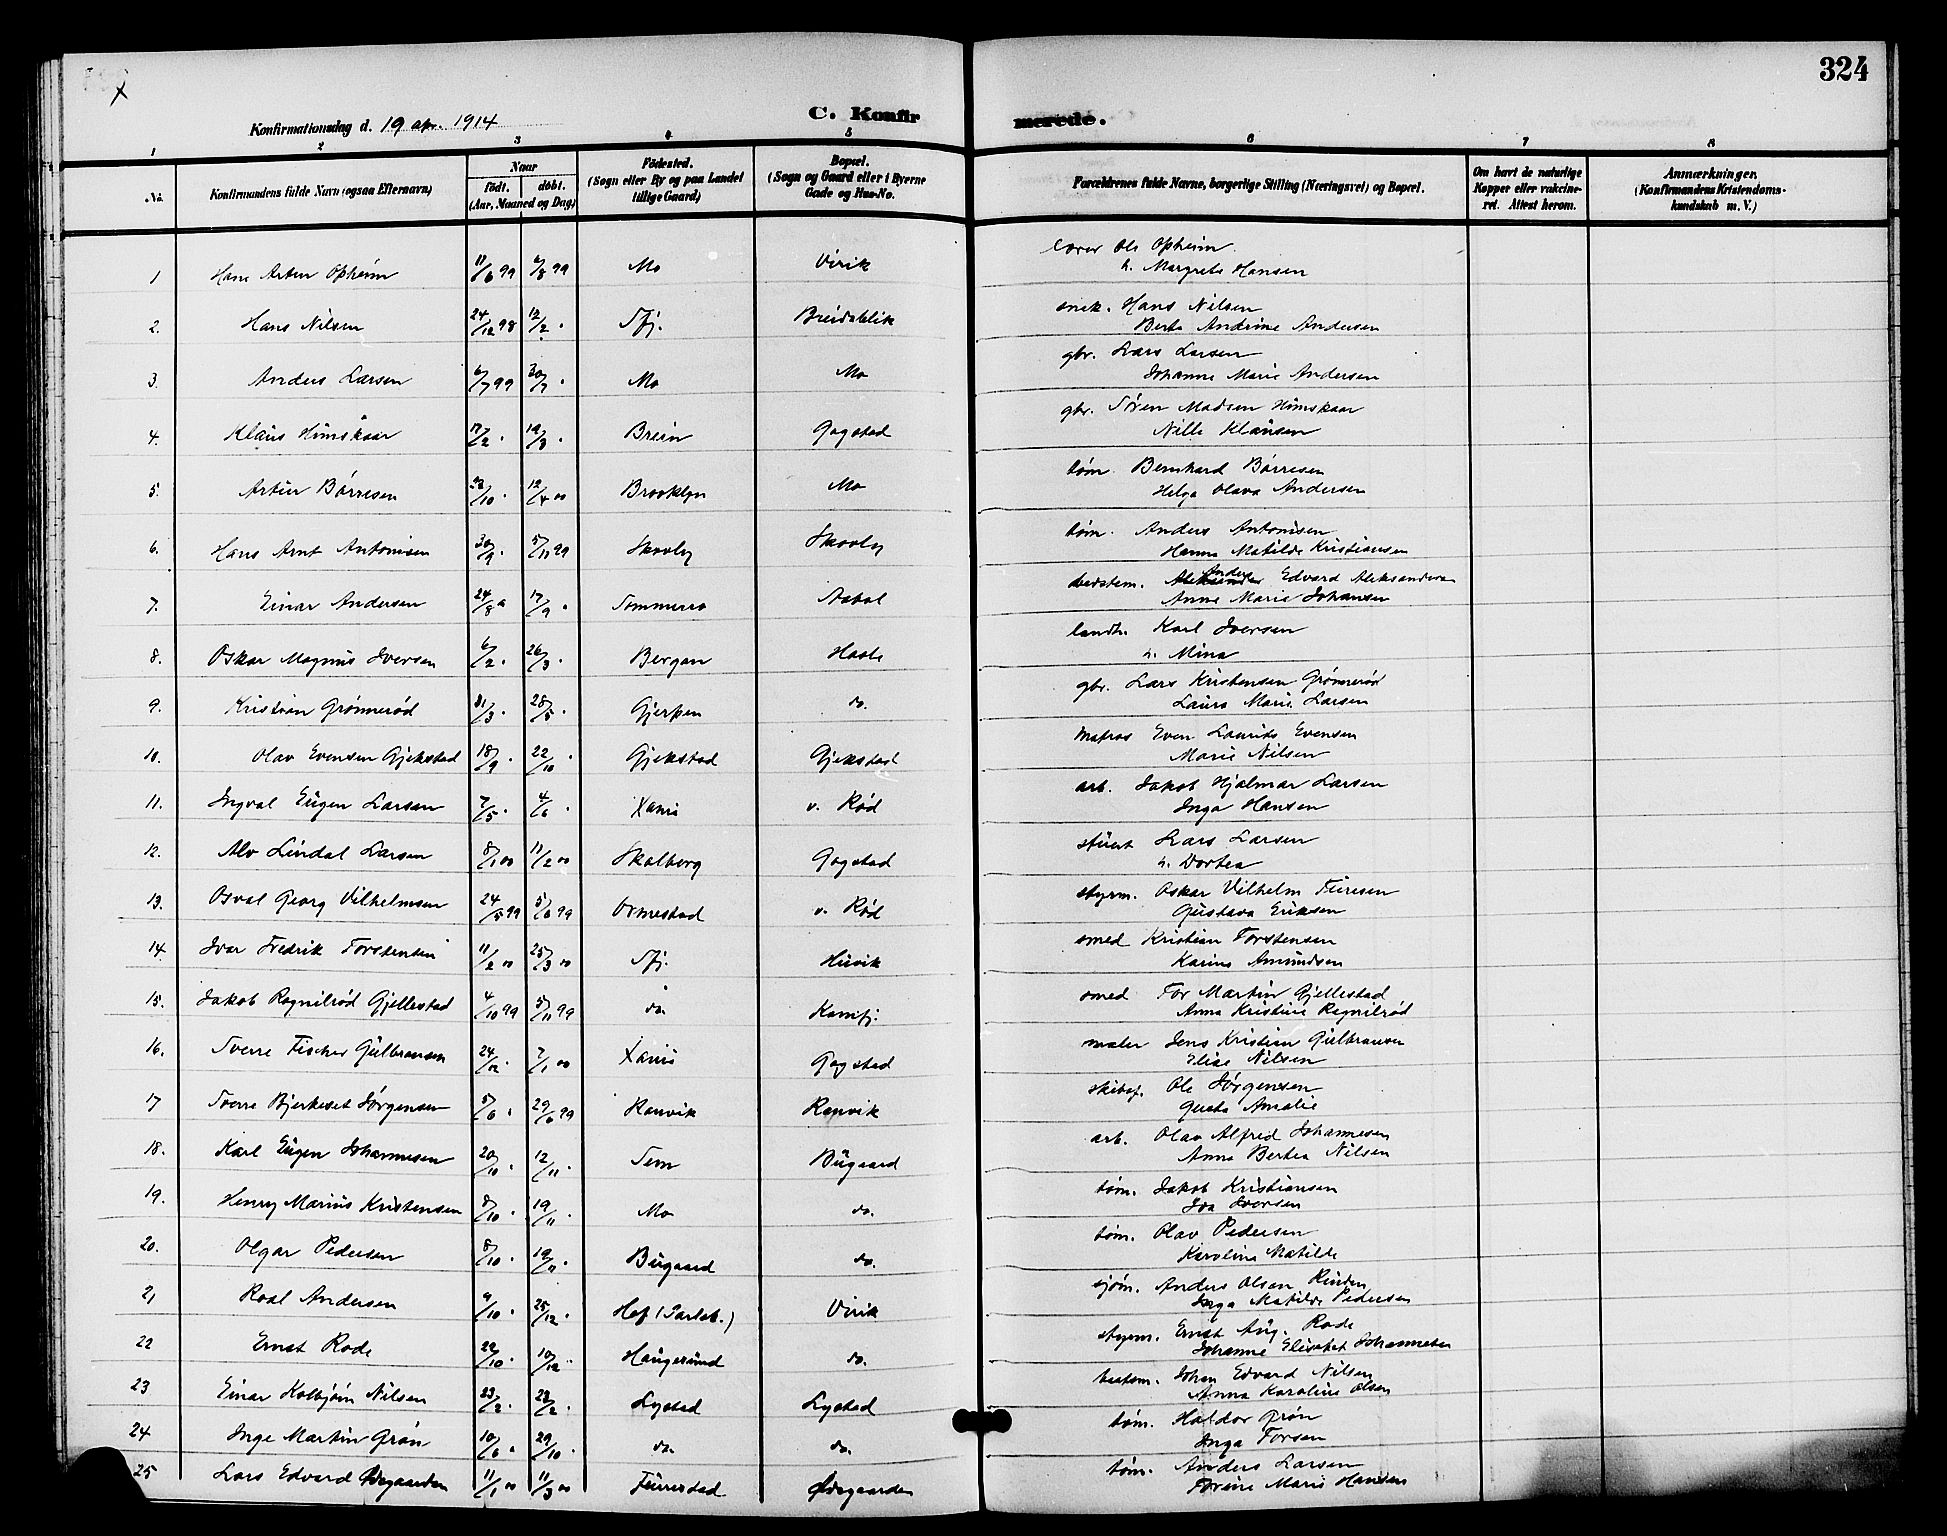 324
Konfirmationsdag d. 19 apr. 1914
C. Konfir
merede.
1 2 3 4 5 6 7 8
No.
Konfirmandens fulde Navn (ogsaa Efternavn)
Naar
födt. döbt.
(Aar, Maaned og Dag)
Födested.
(Sogn eller By og paa Landet
tillige Gaard)
Bopæl.
(Sogn og Gaard eller i Byerne
Gade og Hus-No.
Forældrenes fulde Navne, borgerlige Stilling (Næringsvei) og Bopæl.
Om havt de naturlige
Kopper eller vakcine-
ret. Attest herom.
Anmærkninger.
(Konfirmandens Kristendoms-
kundskab m. V.)
1 Hans Artur Opheim 11/6 99 6/8 99 Mo Virik lærer Ole Opheim
h. Margrete Hansen
2. Hans Nilsen 24/12 98 12/2 . Sfj. Breidablik snek. Hans Nilsen
Berte Andrine Andersen
3. Anders Larsen 6/7 99 30/7 . Mo Mo gbr. Lars Larsen
Johanne Marie Andersen
4. Klaus Himskaar 17/2 . 19/3 . Brein Gogstad gbr. Søren Madsen Himskaar
Nille Klausen
5. Artur Børresen 22/10 . 12/4 00 Brooklyn Mo tøm. Bernhard Børresen
Helga Olava Andersen
6. Hans Arnt Antonisen 30/9 . 5/11 99 Skovly Skovly tøm. Anders Antonisen
Hanna Matilde Kristiansen
7. Einar Andersen 24/8 . 17/9 . Sommerro Aabol Anders Edvard Aleksandersen
Anne Marie Johansen
8. Oskar Magnus Iversen 6/2 . 26/3 . Bergan Hasle landh. Karl Iversen
h. Mina
9. Kristian Grønnerød 31/3 . 28/5 . Gjerpen do. gbr. Lars Kristensen Grønnerød
Laura Marie Larsen
10. Olav Evensen Gjekstad 18/9 . 22/10 . Gjekstad Gjekstad matros Even Laurits Evensen
Marie Nilsen
11. Ingval Eugen Larsen 7/5 . 4/6 . Xania v. Rød arb. Jakob Hjalmar Larsen
Inga Hansen
12. Alv Lindal Larsen 8/1 00 11/2 00 Skalberg Gogstad stuert Lars Larsen
h. Dortea
13. Osval Georg Vilhelmsen 24/5 99 5/6 99 Ormestad v. Rød styrm. Oskar Vilhelm Furesen
Gustava Eriksen
14. Ivar Fredrik Torstensen 11/2 00 25/3 00 Sfj. Huvik smed Kristian Torstensen
Karine Amundsen
15. Jakob Ragnilrød Gjellestad 4/10 99 5/11 99 do. Kamfj. smed Tor Martin Gjellestad
Anna Kristine Ragnilrød
16. Sverre Fischer Gulbransen 24/12 . 7/1 00 Xania Gogstad maler Jens Kristian Gulbransen
Elise Nilsen
17 Sverre Bjerkeset Jørgensen 5/6 . 29/6 99 Ranvik Ranvik skibsf. Ole Jørgensen
Gusta Amalie
18. Karl Eugen Johannesen 20/10 . 12/11 . Sem Bugaard arb. Olav Alfred Johannesen
Anna Bertea Nilsen
19. Henry Marius Kristensen 8/10 . 19/11 . Mo do. tøm. Jakob Kristiansen
Iva Iversen
20. Olgar Pedersen 8/10 . 19/11 . Bugaard do. tøm. Olav Pedersen
Karoline Matilde
21 Roal Andersen 9/10 . 25/12 . Hof (Jarlsb.) Virik sjøm. Anders Olsen Rinden
Inga Matilde Pedersen
22 Ernst Rode 22/10 . 10/12 . Haugesund do. styrm. Ernst Aug. Rode
Johanne Elisabet Johannesen
23 Einar Kolbjørn Nilsen 23/2 . 23/2 . Lystad Lystad baatsm. Johan Edvard Nilsen
Anna Karoline Olsen
24 Inge Martin Grøn 10/6 . 29/10 . do. do. tøm. Haldor Grøn
Inga Torsen
25 Lars Edvard Ødegaarden 11/1 00 11/3 00 Furrestad Ødegaarden tøm. Anders Larsen
Torine Marie Hansen